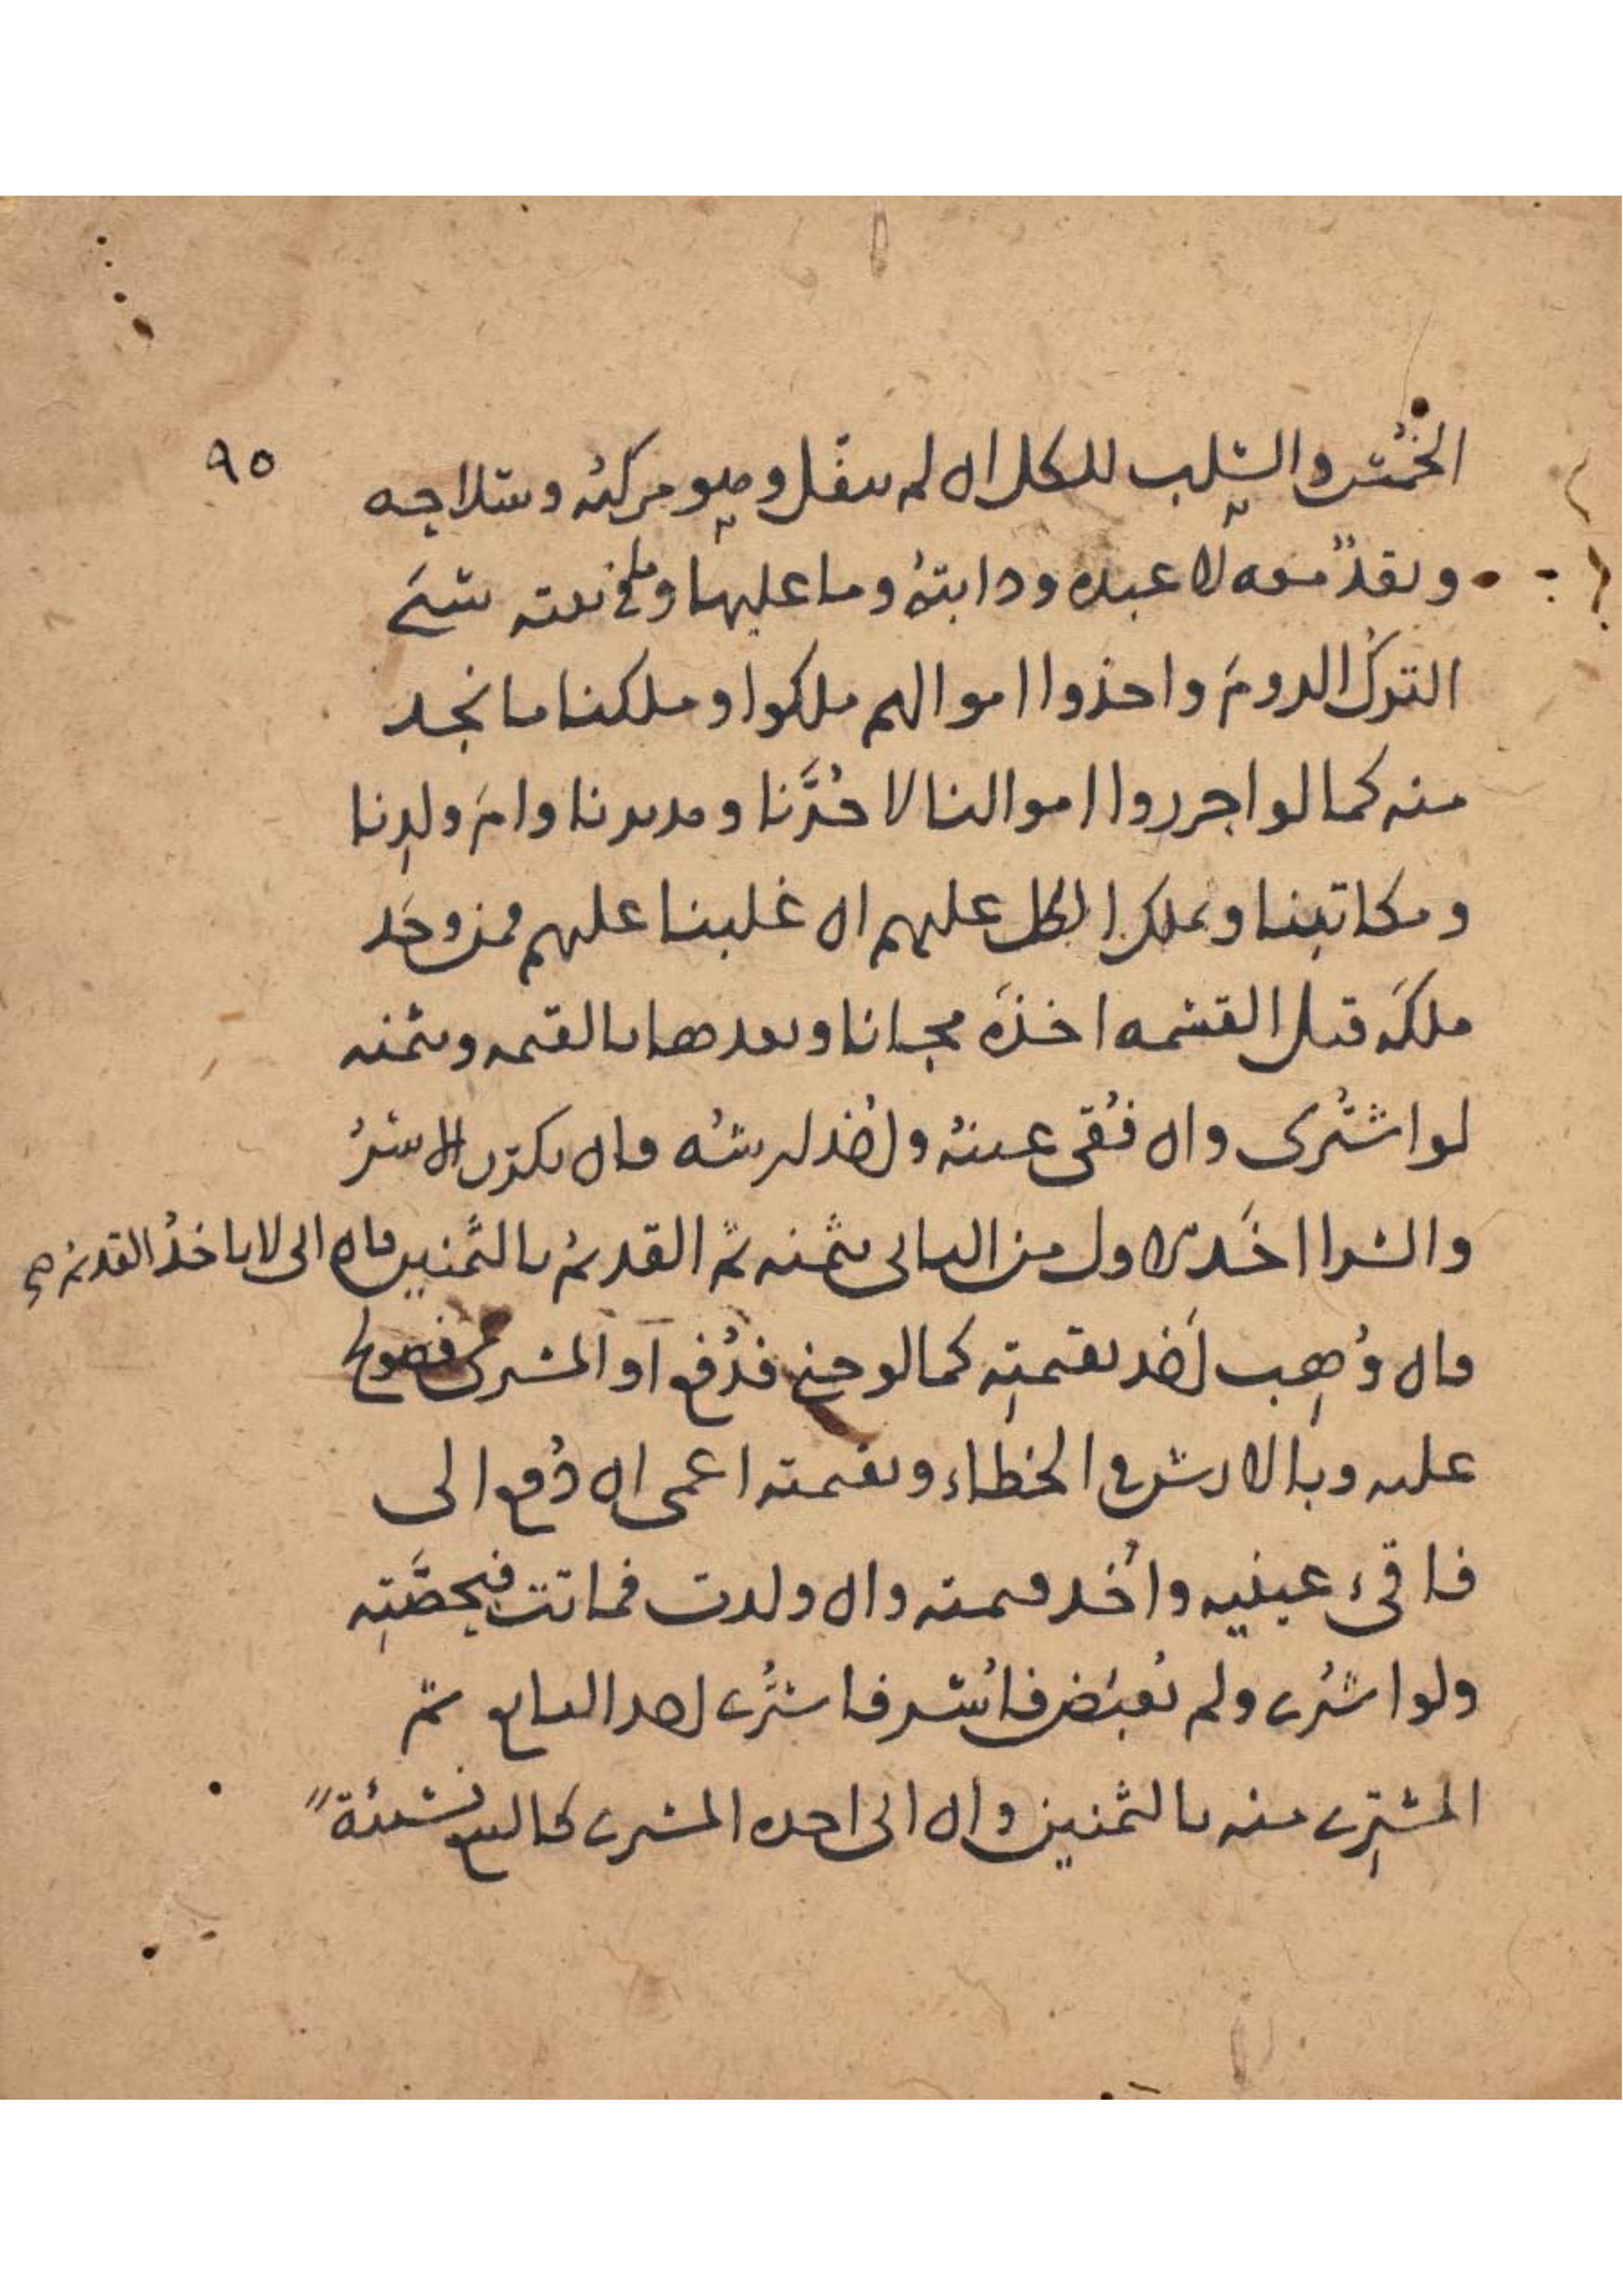 ٩٥
الخُمُس والسلب للكل ان لم ينفل وهو مركبُه وسلاحه
ونقد معه لا عبده ودابتُه وما عليها وما في بيته سبىَ
التركُ الرومَ واخذوا اموالهم ملكوا وملكنا ما نجد
منه كما لو احرزوا اموالنا لا حُرَّنا ومدبرنا وامَ ولدِنا
ومكاتبنا ونملك الكل عليهم ان غلبنا عليهم فمن وجَد
ملكَه قبل القسمه اخذَه مجانا وبعدها بالقيمه وبثمنه
لو اشتُرى وان فُقى عينُه واُخذ ارشُه فان تكرر الاسرُ
والشرا اخَذ الاول من الثانى بثمنه ثم القديمُ بالثمنين فان ابى لا ياخذُ القديمُ صح
فان وُهِب اَخذ بقيمتِه كما لو جنى فدُفع او المشترى فصولح
عليه وبالارش فى الخطاء وبقيمته اعمى ان دُفع الى
فاقىء عينيه واُخذ قيمته وان ولدت فماتت فبحصَّتِه
ولو اشتُرى ولم يُقبَض فاُسر فاشتُرى اخذ البايع ثم
المشترِى منه بالثمنين وان ابى اخذه المشترى كالبيع نسئةً